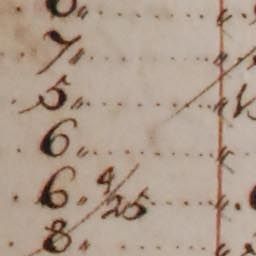 7〃
5〃
6〃
6〃 4/25
8〃